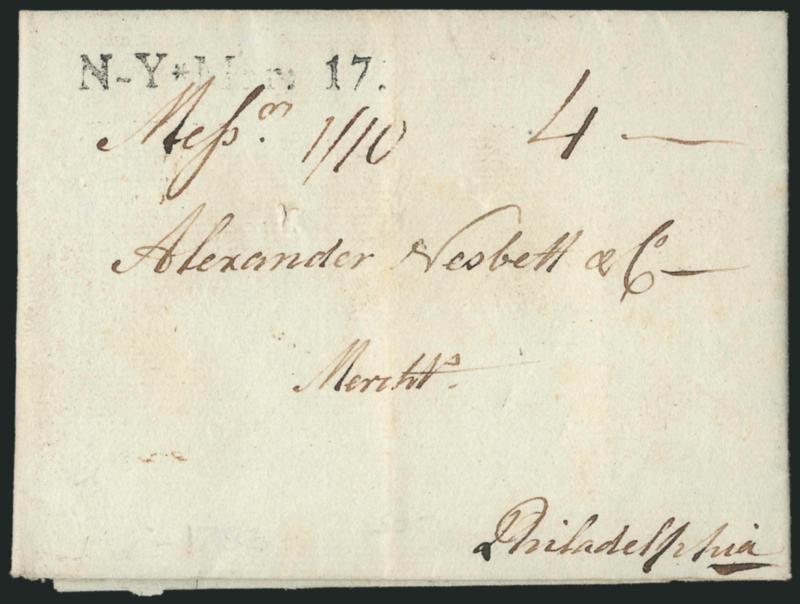 N-Y* 17.
Messrs. 1/10 4
Alexander Nesbett & Co.
Merchts.
Philadelphia